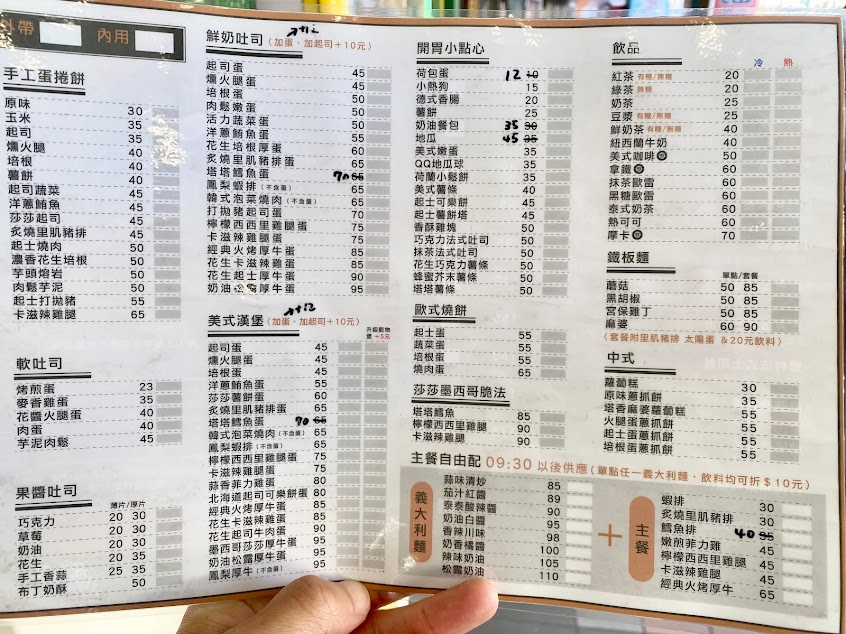 外帶 內用
手工蛋捲餅
原味 30
玉米 35
起司 35
燻火腿 40
培根 40
薯餅 40
起司蔬菜 50
洋蔥鮪魚 50
莎莎起司 50
炙燒里肌豬排 50
起士燒肉 50
濃香花生培根 50
芋頭熔岩 50
肉鬆芋泥 50
起士打拋豬 55
卡滋辣雞腿 65
軟吐司
烤煎蛋 23
麥香雞蛋 35
花醬火腿蛋 40
肉蛋 40
芋泥肉鬆 45
果醬吐司 薄片/厚片
巧克力 20 30
草莓 20 30
奶油 20 30
花生 20 30
手工香蒜 25 35
布丁奶酥 50
鮮奶吐司 (加蛋、加起司+10元) +12
起司蛋 45
燻火腿蛋 45
培根蛋 45
肉鬆嫩蛋 50
活力蔬菜蛋 50
洋蔥鮪魚蛋 55
花生培根厚蛋 60
炙燒里肌豬排蛋 65
塔塔鱈魚蛋 70 65
鳳梨蝦排(不含蛋) 65
韓式泡菜燒肉(不含蛋) 65
打拋豬起司蛋 70
檸檬西西里雞腿蛋 75
卡滋辣雞腿蛋 75
經典火烤厚牛蛋 85
花生卡滋辣雞蛋 85
花生起士厚牛蛋 90
奶油松露厚牛蛋 95
美式漢堡 (加蛋、加起司+10元) +12
升級穀物堡+5元
起司蛋 45
燻火腿蛋 45
培根蛋 45
洋蔥鮪魚蛋 55
莎莎薯餅蛋 60
炙燒里肌豬排蛋 65
塔塔鱈魚蛋 70 65
韓式泡菜燒肉(不含蛋) 65
鳳梨蝦排(不含蛋) 65
檸檬西西里雞腿蛋 75
卡滋辣雞腿蛋 75
蒜香菲力雞蛋 80
北海道起司可樂餅蛋 80
經典火烤厚牛蛋 85
花生卡滋辣雞蛋 85
花生起司牛肉蛋 90
墨西哥莎莎厚牛蛋 95
奶油松露厚牛蛋 95
鳳梨厚牛(不含蛋) 95
開胃小點心
荷包蛋 12 10
小熱狗 15
德式香腸 20
薯餅 25
奶油餐包 35 30
地瓜 45 35
美式嫩蛋 35
QQ地瓜球 35
荷蘭小鬆餅 35
美式薯條 40
起士可樂餅 45
起士薯餅塔 45
香酥雞塊 50
巧克力法式吐司 50
抹茶法式吐司 50
花生巧克力薯條 50
蜂蜜芥末薯條 50
塔塔薯條 50
歐式燒餅
起士蛋 55
蔬菜蛋 55
培根蛋 55
燒肉蛋 65
莎莎墨西哥脆法
塔塔鱈魚 85
檸檬西西里雞腿 90
卡滋辣雞腿 90
飲品 冷 熱
紅茶 有糖/無糖 20
綠茶 無糖 20
奶茶 25
豆漿 有糖/無糖 25
鮮奶茶 有糖/無糖 40
紐西蘭牛奶 40
美式咖啡 50
拿鐵 60
抹茶歐雷 60
黑糖歐雷 60
泰式奶茶 60
熱可可 60
摩卡 70
鐵板麵 單點/套餐
蘑菇 50 85
黑胡椒 50 85
宮保雞丁 50 85
麻婆 60 90
(套餐附里肌豬排 太陽蛋 &20元飲料)
中式
蘿蔔糕 30
原味蔥抓餅 35
塔香麻婆蘿蔔糕 55
火腿蛋蔥抓餅 55
起士蛋蔥抓餅 55
培根蛋蔥抓餅 55
主餐自由配 09:30 以後供應 (單點任一義大利麵,飲料均可折$10元)
義大利麵
蒜味清炒 85
茄汁紅醬 89
泰泰酸辣醬 90
奶油白醬 95
香辣川味 98
奶香橘醬 100
辣味奶油 105
松露奶油 110
+
主餐
蝦排 30
炙燒里肌豬排 30
鱈魚排 40 35
嫩煎菲力雞 45
檸檬西西里雞腿 45
卡滋辣雞腿 45
經典火烤厚牛 65